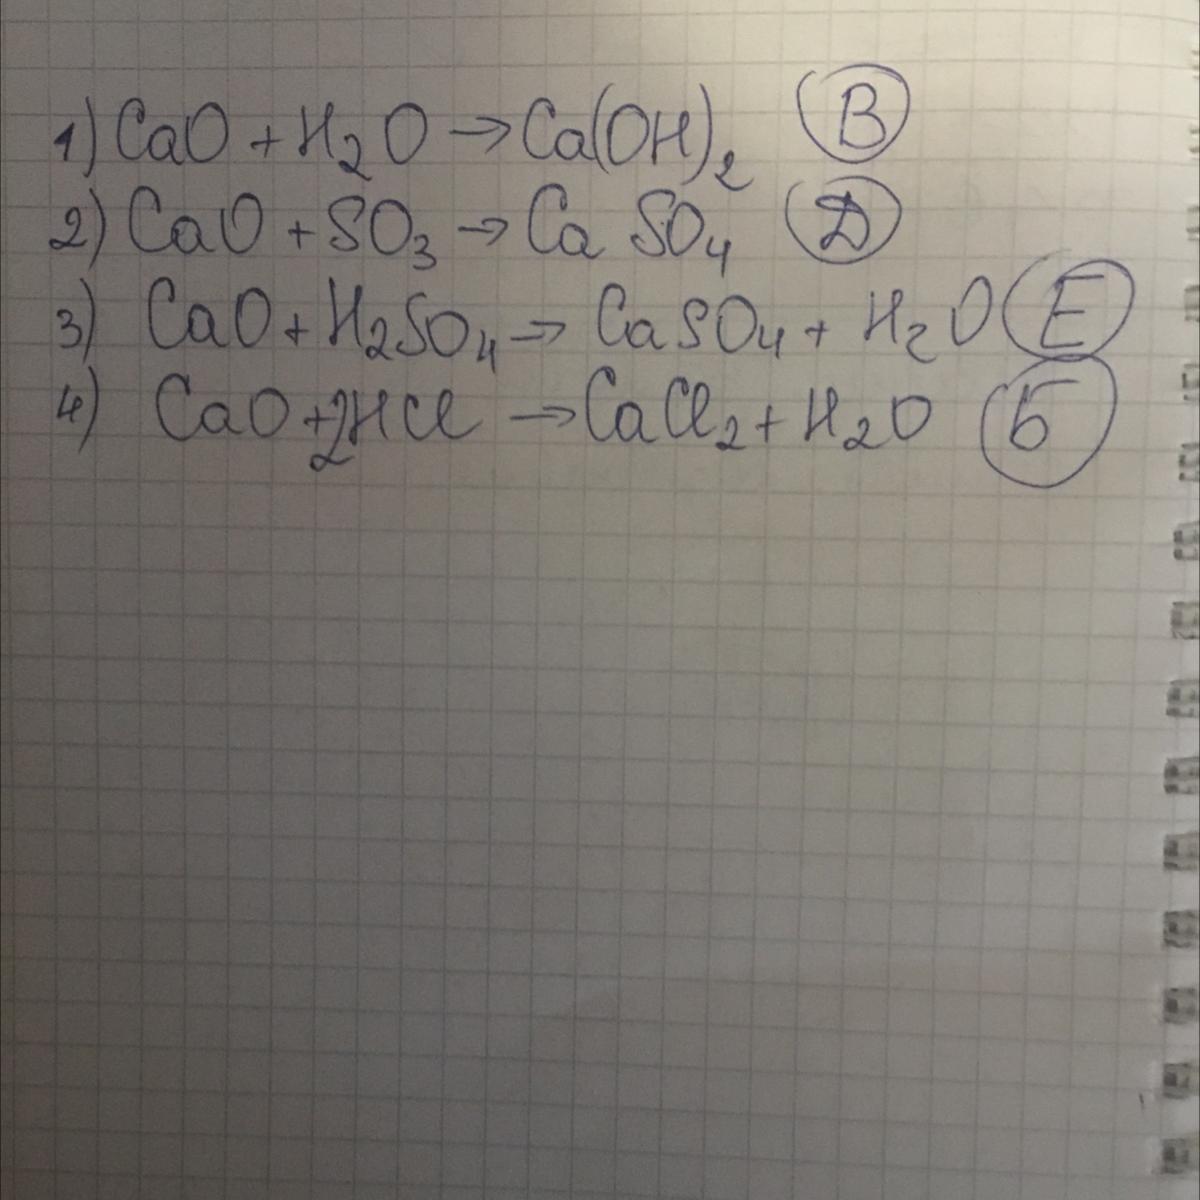 1) CaO + H₂O → Ca(OH)₂ В
2) CaO + SO₃ → CaSO₄ Д
3) CaO + H₂SO₄ → CaSO₄ + H₂O Е
4) CaO + 2HCl → CaCl₂ + H₂O Б